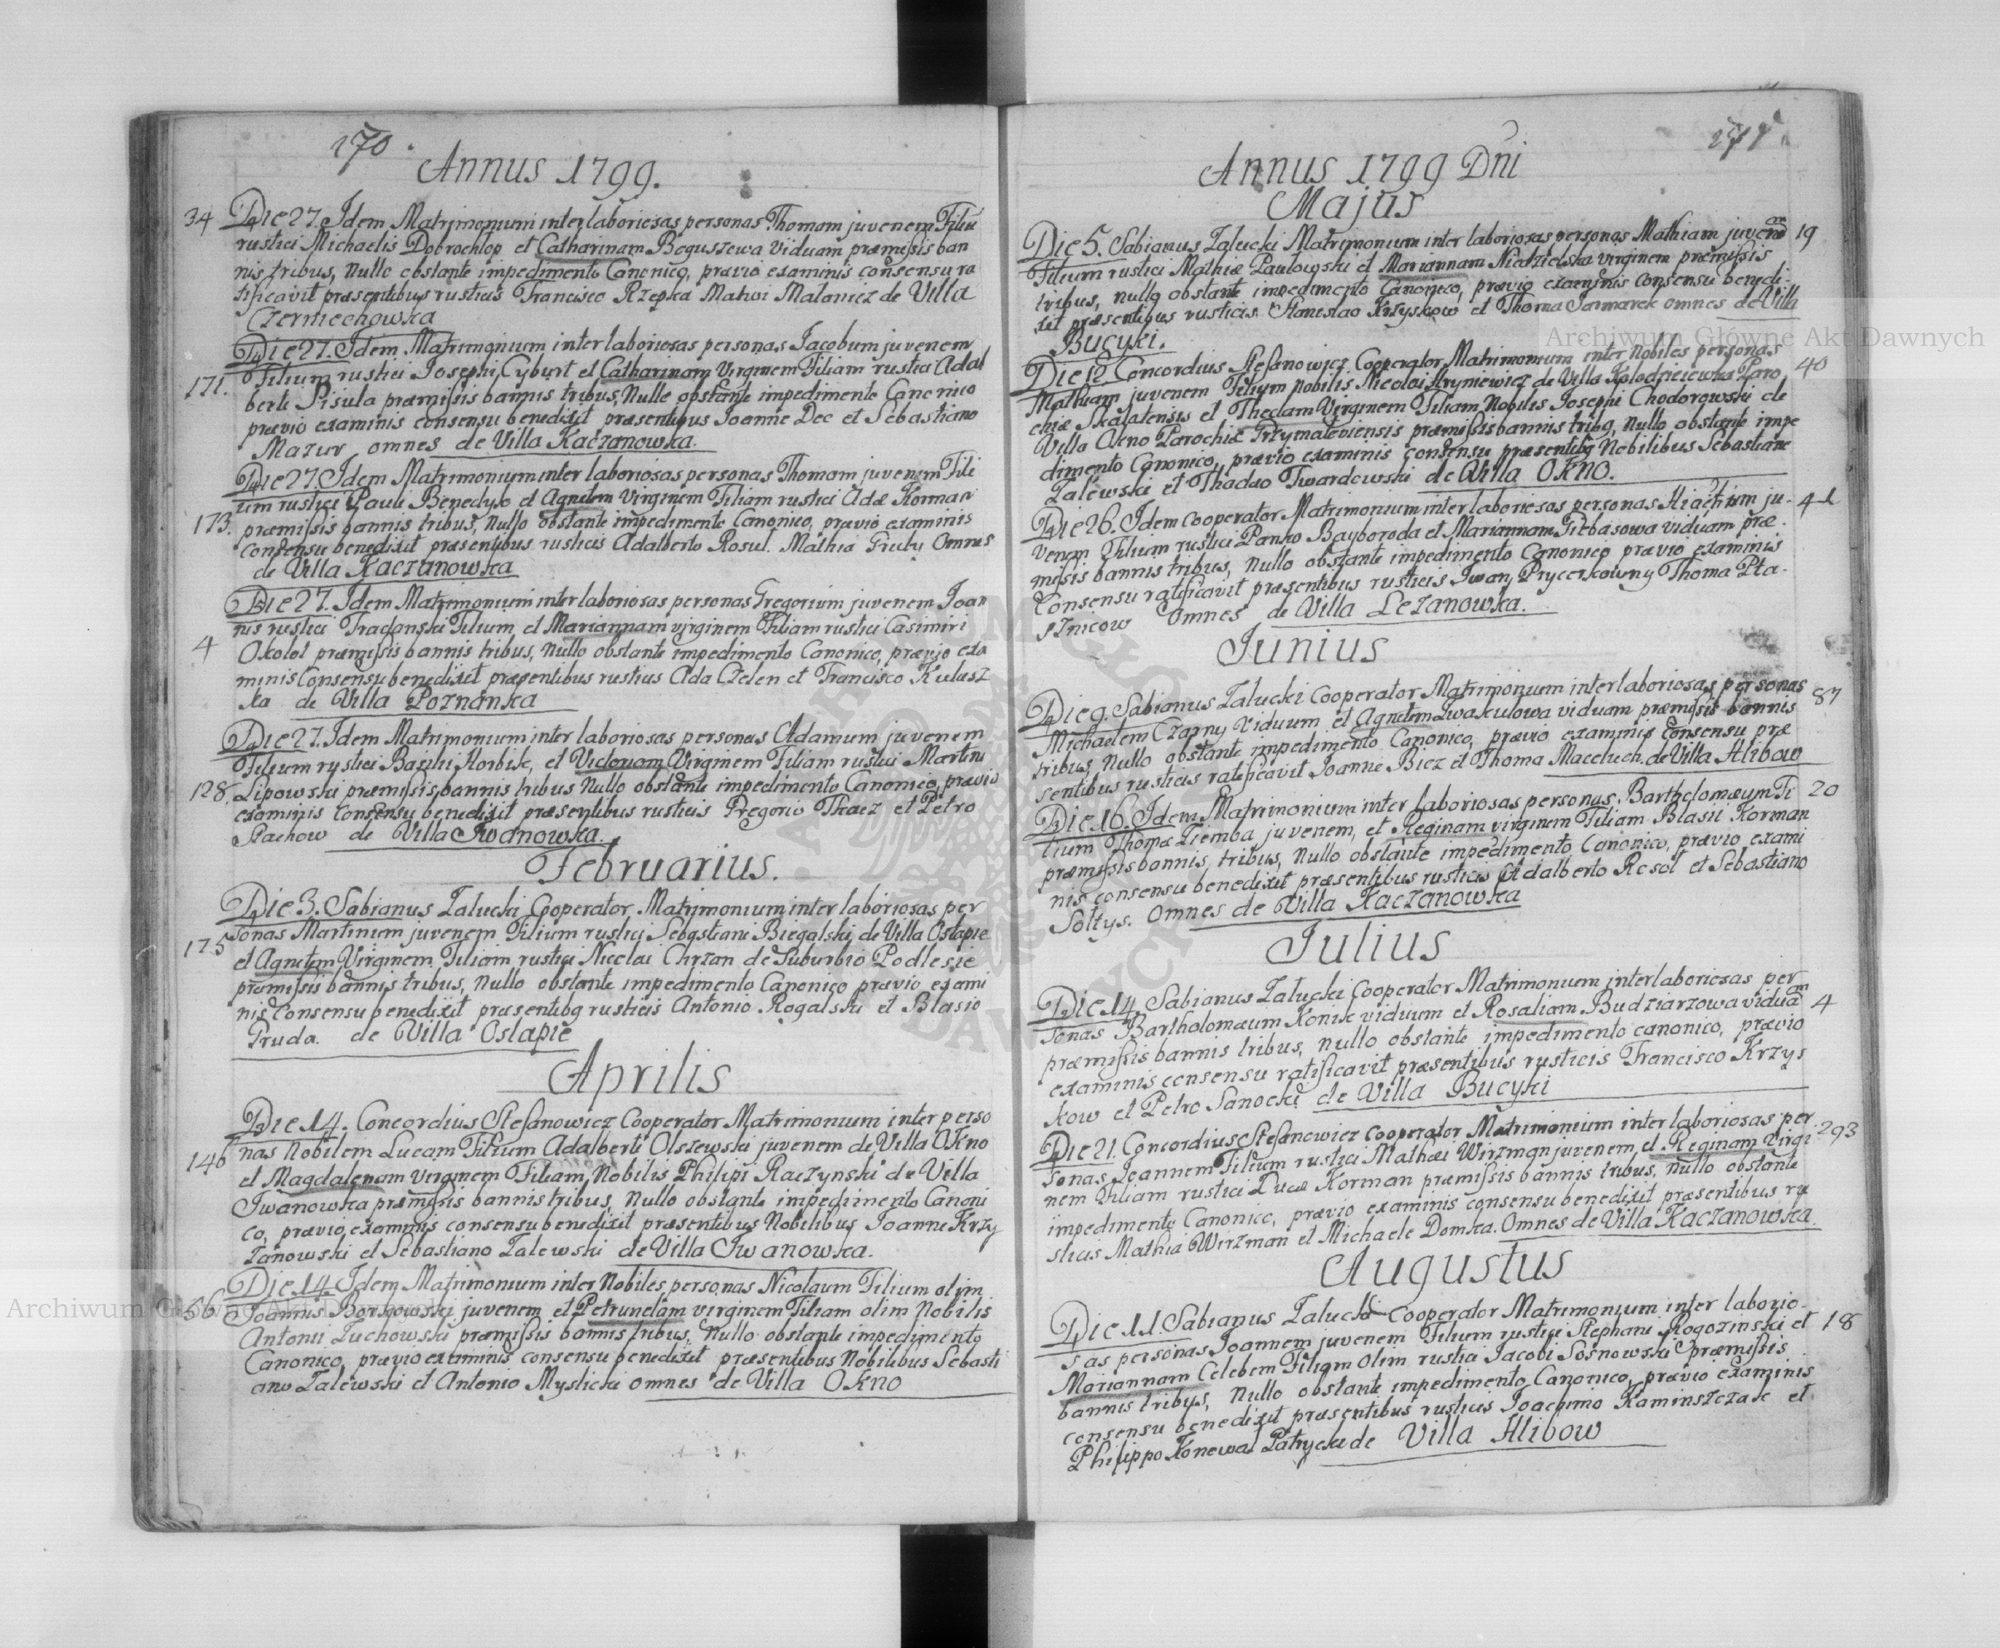 270.
Annus 1799.
34 Die 27. Idem Matrimonium inter laboriosas personas Thomam juvenem Filiū
rustici Michaelis Dobrochłop et Catharinam Boguszewa viduam præmissis ban
nis tribus, Nullo obstante impedimento Canonico, prævio examinis consensu ra
tificavit præsentibus rusticis Francisco Rzepka Matwi Malonicz de Villa
Czerniechowka
Die 27. Idem Matrimonium inter laboriosas personas Jacobum juvenem
171. Filium rustici Josephi Cyburt et Catharinam Virginem Filiam rustici Adal
berti Pisula præmissis bannis tribus, Nullo obstante impedimento Canonico
prævio examinis consensu benedixit præsentibus Joanne Dec et Sebastiano
Mazur omnes de Villa Kaczanowka.
Die 27. Idem Matrimonium inter laboriosas personas Thomam juvenem Fili
um rustici Pauli Benedyk et Agnetem Virginem Filiam rustici Adæ Korman
173. præmissis bannis tribus, Nullo obstante impedimento Canonico, prævio examinis
consensu benedixit præsentibus rusticis Adalberto Rosul. Mathia Omnes
de Villa Kaczanowka
Die 27. Idem Matrimonium inter laboriosas personas Gregorium juvenem Joan
nis rustici Filium et Mariannam virginem Filiam rustici Casimiri
4 Okolot præmissis bannis tribus, Nullo obstante impedimento Canonico, prævio exa
minis Consensu benedixit præsentibus rusticis Ada Czelen et Francisco Kulasz
ka de Villa Poznanka
Die 27. Idem Matrimonium inter laboriosas personas Adamum juvenem
Filium rustici Basilii Horbik, et Victoriam Virginem Filiam rustici Martini
128. Lipowski præmissis bannis tribus Nullo obstante impedimento Canonico, prævio
examinis Consensu benedixit præsentibus rusticis Gregorio Tkacz et Petro
Stachow de Villa Iwanowka.
Februarius.
Die 3. Sabianus Zalucki Cooperator Matrimonium inter laboriosas per
sonas Martinum juvenem Filium rustici Sebastiani Biegalski de Villa Ostapie
175 et Agnetem Virginem Filiam rustici Nicolai Chrzan de Suburbio Podlesie
præmissis bannis tribus, Nullo obstante impedimento Canonico prævio exami
nis consensu benedixit præsentibq rusticis Antonio Rogalski et Blasio
Pruda. de Villa Ostapie
Aprilis
Die 14. Concordius Stefanowicz Cooperator Matrimonium inter perso
nas Nobilem Lucam Filium Adalberti Olszewski juvenem de Villa Okno
146 et Magdalenam virginem Filiam Nobilis Philipi Raczynski de Villa
Iwanowka præmissis bannis tribus, Nullo obstante impedimento Canoni
co, prævio examinis consensu benedixit præsentibus Nobilibus Joanne Krzy
zanowski et Sebastiano Zalewski de Villa Iwanowka.
Die 14. Idem Matrimonium inter Nobiles personas Nicolaum Filium olim
56 Joannis Borkowski juvenem et Petrunelam virginem Filiam olim Nobilis
Antonii Zuchowski præmissis bannis tribus, Nullo obstante impedimento
Canonico, prævio examinis consensu benedixit præsentibus Nobilibus Sebasti
ano Zalewski et Antonio Myslicki omnes de Villa Okno
271
Annus 1799 Dni
Majus
Die 5. Sabianus Zalucki Matrimonium inter laboriosas personas Mathiam juvenem 19
Filium rustici Mathiæ Pawlowski et Mariannam Niedzielska virginem præmissis
tribus, nullo obstante impedimento Canonico, prævio examinis consensu benedi-
xit præsentibus rusticis Stanislao Krzyskow et Thoma Jarmarek omnes de Villa
Bucyki.
Die 12 Concordius Stefanowicz Cooperator Matrimonium inter Nobiles personas
Mathiam juvenem Filium Nobilis Nicolai Hryniewicz de Villa Kołodzieiewka Paro 40
chiæ Skalatensis et Theclam Virginem Filiam Nobilis Josephi Chodorowski de
Villa Okno Parochiæ Przymaloviensis præmissis bannis tribq, Nullo obstante impe
dimento Canonico, prævio examinis consensu præsentibq Nobilibus Sebastiano
Zalewski et Thadæo Twardowski de Villa Okno.
Die 26. Idem cooperator Matrimonium inter laboriosas personas Hiacÿtum ju- 41
venem Filium rustici Panko Bayboroda et Mariannam viduam præ-
missis bannis tribus, Nullo obstante impedimento Canonico prævio examinis
Consensu ratificavit præsentibus rusticis Iwan Thoma Pta-
sznicow Omnes de Villa Lezanowka.
Junius
Die 9. Sabianus Zalucki Cooperator Matrimonium inter laboriosas personas 87
Michaelem Czarny Viduum et Agnetem Iwaskulowa viduam præmissis bannis
tribus, Nullo obstante impedimento Canonico, prævio examinis consensu præ
sentibus rusticis ratificavit Joanne Bicz et Thoma Maceluch. de Villa Hlibow
Die 16. Idem Matrimonium inter laboriosas personas. Bartholomæum Fi 20
lium Thomæ Ziemba juvenem, et Reginam virginem Filiam Blasii Korman
præmissis bannis, tribus, Nullo obstante impedimento Canonico, prævio exami
nis consensu benedixit præsentibus rusticis Adalberto Rosol et Sebastiano
Sołtys. Omnes de Villa Kaczanowka
Julius
Die 14. Sabianus Zalucki Cooperator Matrimonium inter laboriosas per
sonas Bartholomæum Konik viduum et Rosaliam Budziarzowa viduam 4
præmissis bannis tribus, Nullo obstante impedimento canonico, prævio
examinis consensu ratificavit præsentibus rusticis Francisco Krzys
kow et Petro Sanocki de Villa Bucyki
Die 21. Concordius Stefanowicz Cooperator Matrimonium inter laboriosas per
sonas Joannem Filium rustici Mathæi Wirzman juvenem et Reginam Virgi 293
nem Filiam rustici Lucæ Korman præmissis bannis tribus, Nullo obstante
impedimento Canonico, prævio examinis consensu benedixit præsentibus ru
sticis Mathia Wirzman et Michaele Domka. Omnes de Villa Kaczanowka
Augustus
Die 11. Sabianus Zalucki Cooperator Matrimonium inter laborio-
sas personas Joannem juvenem Filium rustici Stephani Rogozinski et 18
Mariannam Celebem Filiam Olim rustici Jacobi Sosnowski præmissis
bannis tribus, Nullo obstante impedimento Canonico, prævio examinis
consensu benedixit præsentibus rusticis Joachimo Kaminszczak et
Philippo Konewal de Villa Hlibow
Archiwum Główne Akt Dawnych
Archiwum Główne Akt Dawnych